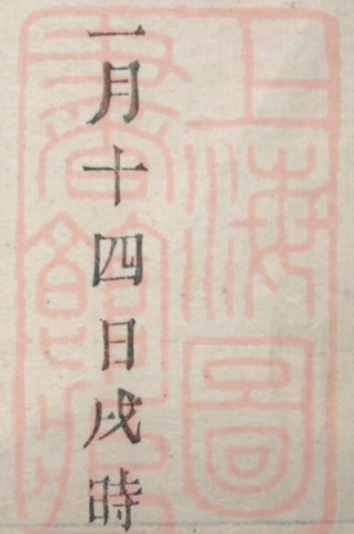 一月十四日戌時
上海圖
書館藏